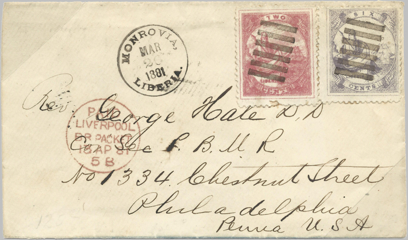 MONROVIA,
MAR
1881
LIBERIA.
TWO
CENTS
SIX
CENTS
Rev. George Hale D D
LIVERPOOL
BR PACKET
18 AP 81
5 B
Sec P. B. M R
No 1334 Chestnut Street
Philadelphia
Penna U.S.A